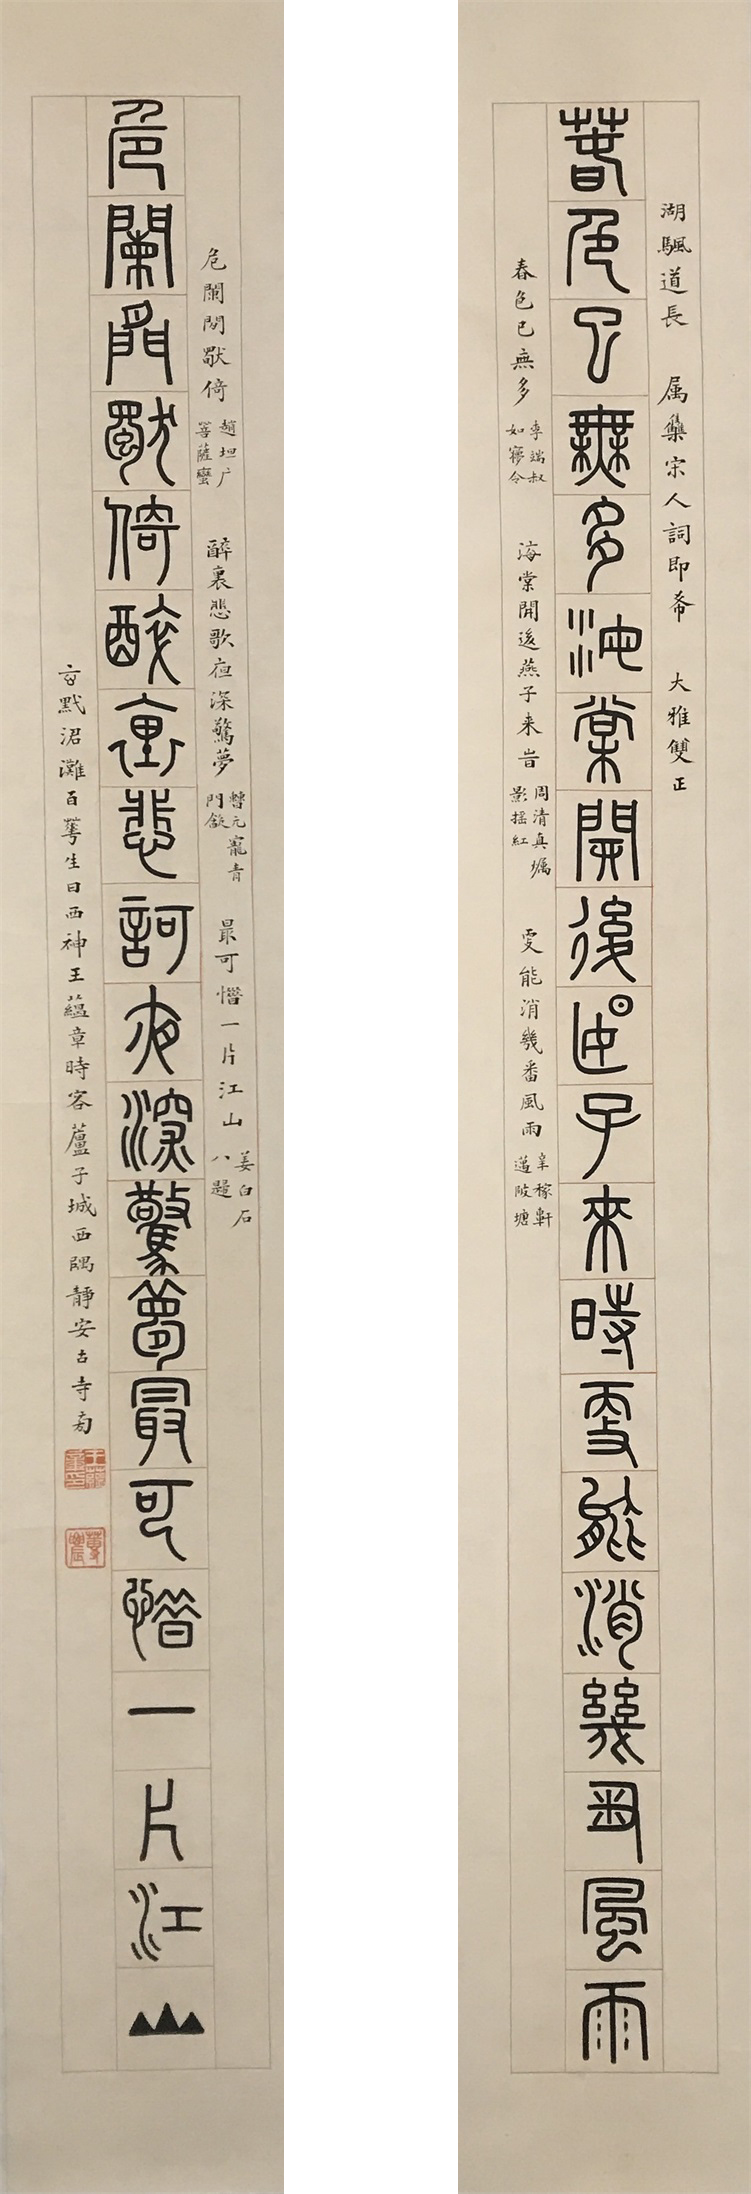 湖颿道長　属集宋人詞即希　大雅雙正
春色已無多海棠開後燕子來時更能消幾番風雨
春色已無多
李端叔
如夢令
海棠開後燕子來峕
周清真燭
影摇紅
更能消幾番風雨
辛稼軒
邁陂塘
危闌閒獨倚醉裏悲歌夜深驚夢最可惜一片江山
危闌閒獨倚
趙坦广
菩薩蠻
醉裏悲歌夜深驚夢
最可惜一片江山
姜白石
八歸
玄黓涒灘百華生日西神王蘊章時客蘆子城西隅靜安古寺